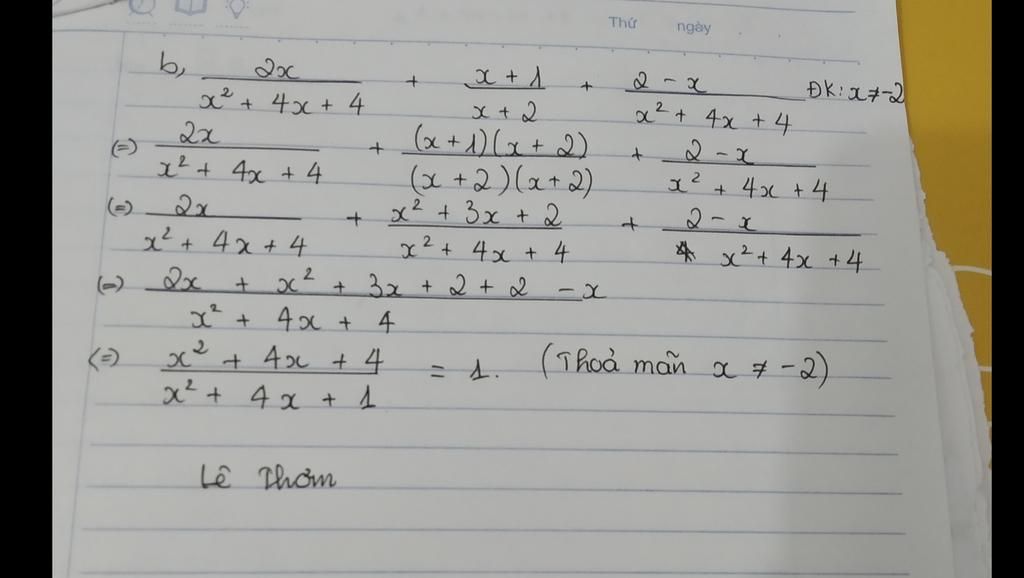 Thứ ngày
b, 2x / (x² + 4x + 4) + (x + 1) / (x + 2) + (2 - x) / (x² + 4x + 4) ĐK: x ≠ -2
(=) 2x / (x² + 4x + 4) + (x + 1)(x + 2) / (x + 2)(x + 2) + (2 - x) / (x² + 4x + 4)
(=) 2x / (x² + 4x + 4) + (x² + 3x + 2) / (x² + 4x + 4) + (2 - x) / (x² + 4x + 4)
(=) (2x + x² + 3x + 2 + 2 - x) / (x² + 4x + 4)
(=) (x² + 4x + 4) / (x² + 4x + 1) = 1. (Thoả mãn x ≠ -2)
Lê Thơm